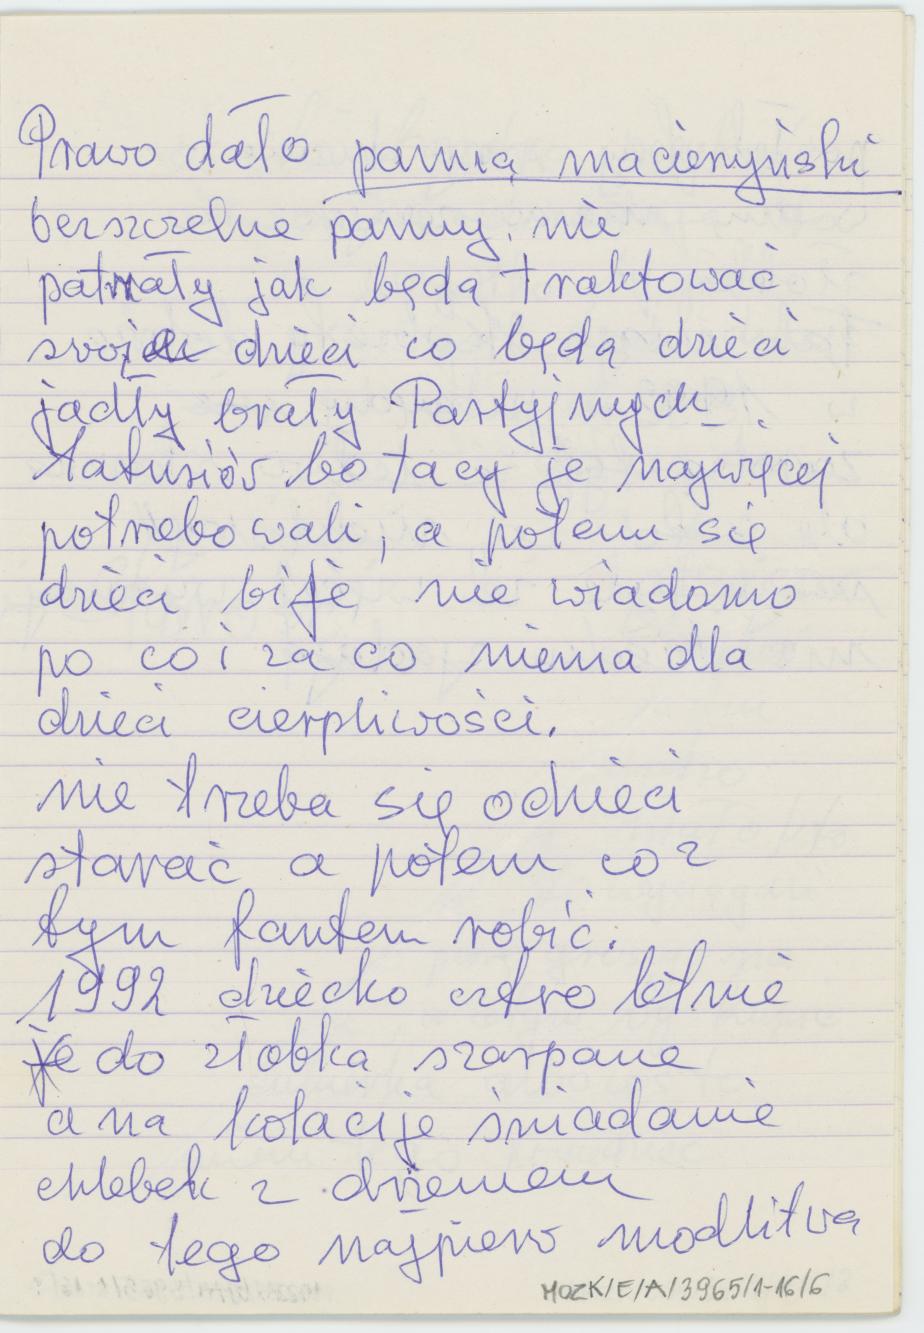 Prawo dało panną macierzyński
berszczelne panny. nie
patrzały jak będą traktować
swoje dzieci co będą dzieci
jadły brały Partyjnych
Tatusiós bo tacy je najwięcej
potrzebowali, a potem się
dzieci bije nie wiadomo
po co i za co niema dla
dzieci cierpliwości.
nie trzeba się odzieci
starać a potem co z
tym fantem robić.
1992 dziecko cztero letnie
je do złobka szarpane
a na kolacije śniadanie
chlebek z dżemem
do tego najpierw modlitwa
MOZK/E/A/3965/1-16/6